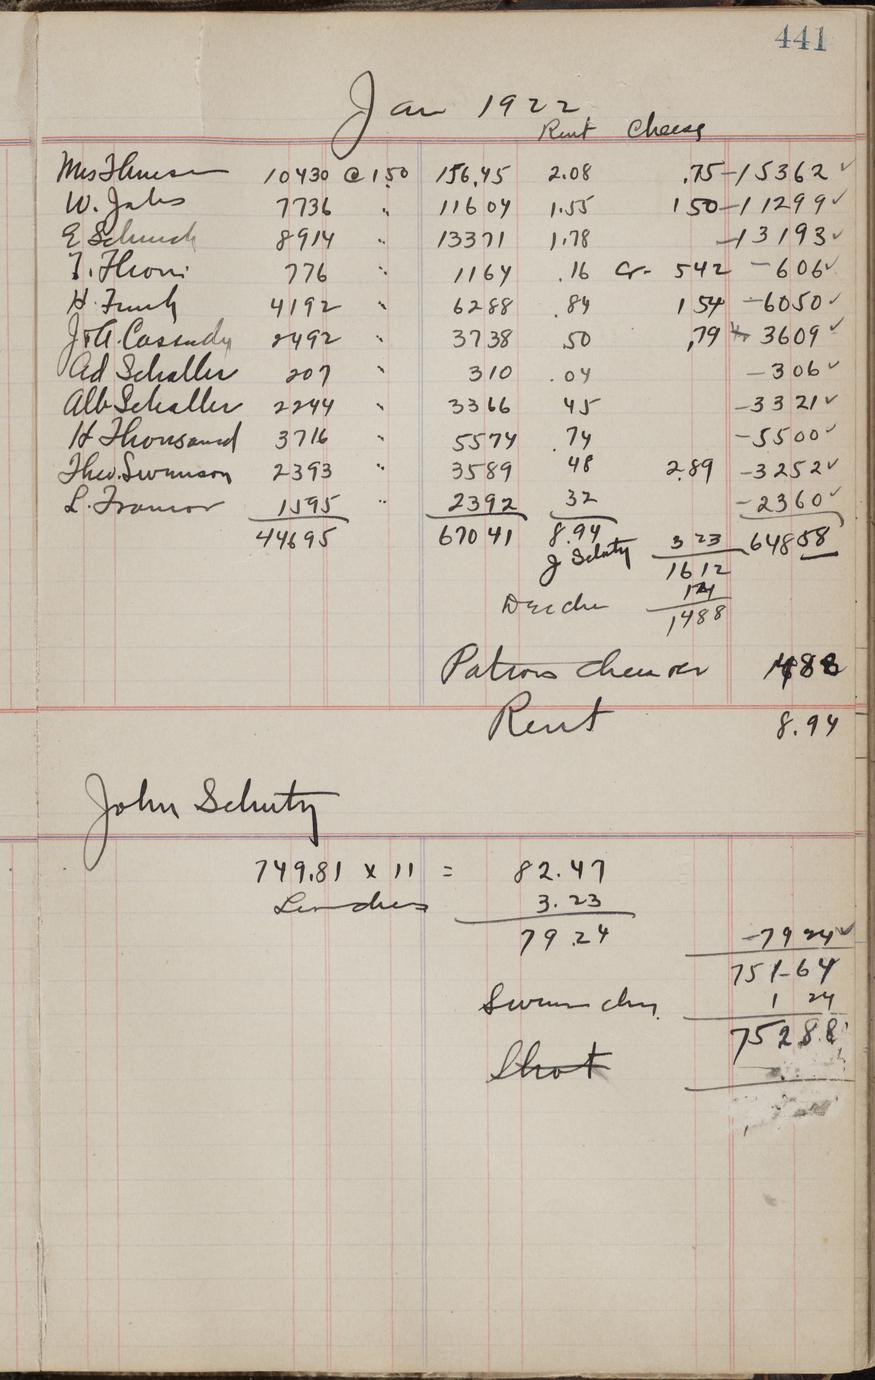 441
Jan 1922
Rent Cheese
Mrs 10430 @ 1.50 156.45 2.08 .75 - 15362 ✓
W. Jahs 7736 " 11604 1.55 150 - 11299 ✓
E Schuck 8914 " 13371 1.78 - 13193 ✓
T. 776 " 1164 .16 Cr- 542 - 606 ✓
H. Funk 4192 " 6288 .84 154 - 6050 ✓
Cassidy 2492 " 3738 50 .79 3609 ✓
Ad Schaller 207 " 310 .04 - 306 ✓
Alb Schaller 2244 " 3366 45 - 3321 ✓
H Thousand 3716 " 5574 .74 - 5500 ✓
Theo. Swanson 2393 " 3589 48 289 - 3252 ✓
L. 1595 " 2392 32 - 2360 ✓
44695 67041 8.94 64858
J Schuty 323
1612
124
1488
Patrons 1488
Rent 8.94
John Schuty
749.81 x 11 = 82.47
3.23
79.24 - 7924 ✓
751-64
1 24
75288
Short